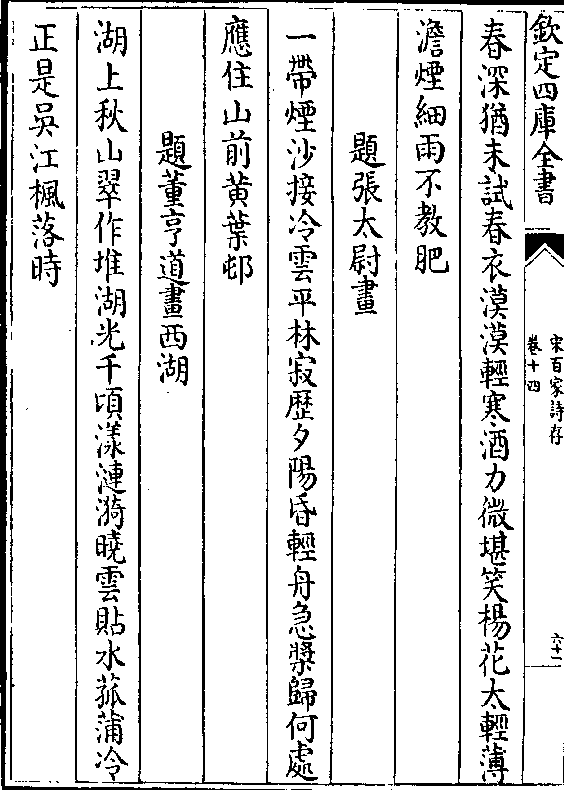 欽定四庫全書
宋百家詩存
卷十四
六十一
春深猶未試春衣漠漠輕寒酒力微堪笑楊花太輕薄
澹煙細雨不教肥
題張太尉畫
一帶煙沙接冷雲平林寂歴夕陽昏輕舟急槳歸何處
應住山前黄葉邨
題董亨道畫西湖
湖上秋山翠作堆湖光千頃漾漣漪曉雲貼水菰蒲冷
正是吳江楓落時